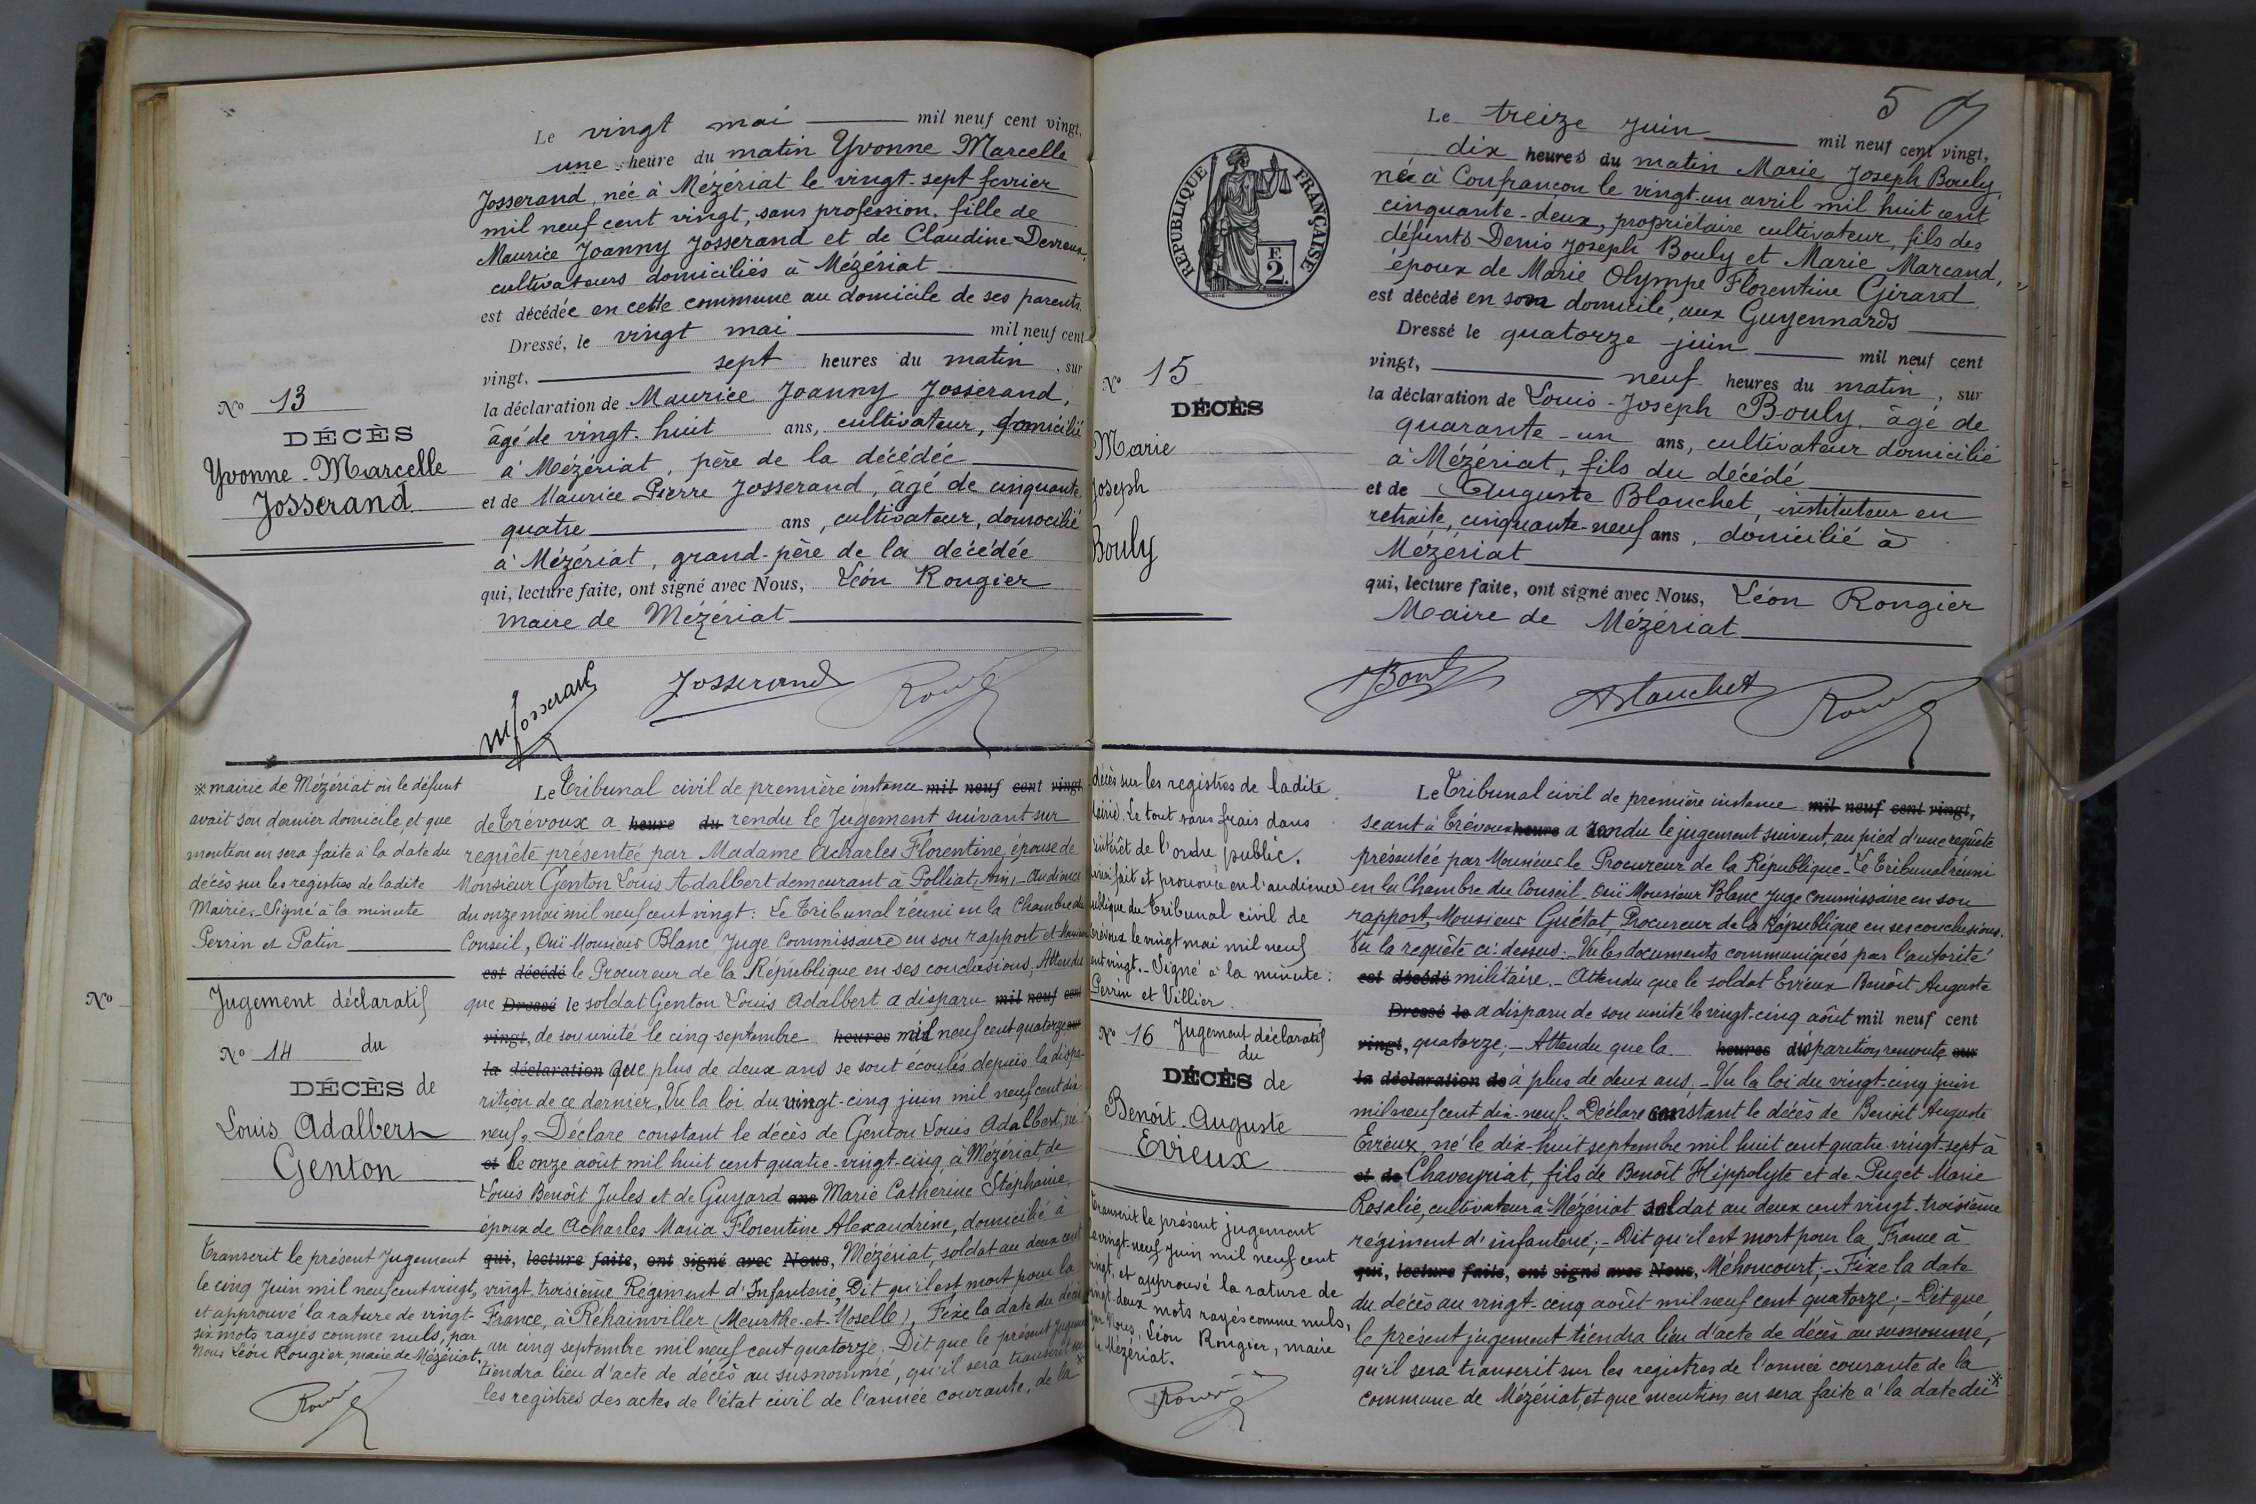 Le vingt mai mil neuf cent vingt,
une heure du matin Yvonne Marcelle
Josserand, née à Mézériat le vingt-sept fevrier
mil neuf cent vingt, sans profession, fille de
Maurice Joanny Josserand et de Claudine Devreux,
cultivateurs domiciliés à Mézériat
est décédée en cette commune au domicile de ses parents.
Dressé, le vingt mai mil neuf cent
vingt, sept heures du matin, sur
la déclaration de Maurice Joanny Josserand,
âgé de vingt-huit ans, cultivateur, domicilié
à Mézériat, père de la décédée
et de Maurice Pierre Josserand, âgé de cinquante
quatre ans, cultivateur, domicilié
à Mézériat, grand-père de la décédée
qui, lecture faite, ont signé avec Nous, Léon Rongier
maire de Mézériat
N° 13
DÉCÈS
Yvonne-Marcelle
Josserand
M Josserand Josserand
※ mairie de Mézériat où le défunt
avait son dernier domicile, et que
mention en sera faite à la date du
décès sur les registres de ladite
Mairie. Signé à la minute
Perrin et Patin
Jugement déclaratif
N° 14 du
DÉCÈS de
Louis Adalbert
Genton
Transcrit le présent Jugement
le cinq Juin mil neuf cent vingt,
et approuvé la rature de vingt-
six mots rayés comme nuls, par
Nous Léon Rongier, maire de Mézériat.
N°
Le Tribunal civil de première instance mil neuf cent vingt
de Trévoux a heure du rendu le Jugement suivant sur
requête présentée par Madame Acharles Florentine, épouse de
Monsieur Genton Louis Adalbert demeurant à Polliat, Ain, - Audience
du onze mai mil neuf cent vingt : Le Tribunal réuni en la Chambre du
Conseil, Ouï Monsieur Blanc Juge Commissaire en son rapport et Monsieur
est décédé le Procureur de la République en ses conclusions, Attendu
que Dressé le soldat Genton Louis Adalbert a disparu mil neuf cent
vingt, de son unité le cinq septembre heures mil neuf cent quatorze sur
la déclaration que plus de deux ans se sont écoulés depuis la dispa-
rition de ce dernier, Vu la loi du vingt-cinq juin mil neuf cent dix
neuf, Déclare constant le décès de Genton Louis Adalbert, né
et le onze août mil huit cent quatre-vingt-cinq, à Mézériat, de
Louis Benoît Jules et de Guyard ans Marie Catherine Stéphanie,
époux de Acharles Maria Florentine Alexandrine, domicilié à
qui, lecture faite, ont signé avec Nous, Mézériat, soldat au deux cent
vingt troisième Régiment d'Infanterie, Dit qu'il est mort pour la
France, à Réhainviller (Meurthe-et-Moselle), Fixe la date du décès
au cinq septembre mil neuf cent quatorze. - Dit que le présent Jugement
tiendra lieu d'acte de décès au susnommé, qu'il sera transcrit sur
les registres des actes de l'état civil de l'année courante, de la ※
5
RÉPUBLIQUE FRANÇAISE
F.
2.
Le treize juin mil neuf cent vingt,
dix heures du matin Marie Joseph Bouly,
né à Confrançon le vingt-un avril mil huit cent
cinquante-deux, propriétaire cultivateur, fils des
défunts Denis Joseph Bouly et Marie Marcand,
époux de Marie Olympe Florentine Girard
est décédé en son domicile, aux Guyennards
Dressé le quatorze juin mil neuf cent
vingt, neuf heures du matin, sur
la déclaration de Louis-Joseph Bouly, âgé de
quarante-un ans, cultivateur domicilié
à Mézériat, fils du décédé
et de Auguste Blanchet, instituteur en
retraite, cinquante-neuf ans, domicilié à
Mézériat
qui, lecture faite, ont signé avec Nous, Léon Rongier
Maire de Mézériat
N° 15
DÉCÈS
Marie
Joseph
Bouly
Bouly ABlanchet
décès sur les registres de ladite
Mairie. Le tout sans frais dans
l'intérêt de l'ordre public.
Ainsi fait et prononcé en l'audience
publique du Tribunal civil de
Trévoux le vingt mai mil neuf
cent vingt. - Signé à la minute :
Perrin et Villier.
N° 16 Jugement déclaratif
du
DÉCÈS de
Benoît-Auguste
Evieux
Transcrit le présent jugement
le vingt-neuf Juin mil neuf cent
vingt, et approuvé la rature de
vingt-deux mots rayés comme nuls,
par Nous, Léon Rongier, maire
de Mézériat.
Le Tribunal civil de première instance mil neuf cent vingt,
seant à Trévoux heure a rendu le jugement suivant, au pied d'une requête
présentée par Monsieur le Procureur de la République - Le Tribunal réuni
en la Chambre du Conseil. Ouï Monsieur Blanc Juge Commissaire en son
rapport, Monsieur Guétat, Procureur de la République en ses conclusions.
Vu la requête ci-dessus. - Vu les documents communiqués par l'autorité
est décédé militaire. - Attendu que le soldat Evieux Benoît Auguste
Dressé le a disparu de son unité le vingt-cinq août mil neuf cent
vingt, quatorze ; - Attendu que la heures disparition remonte sur
la déclaration de à plus de deux ans. - Vu la loi du vingt-cinq juin
mil neuf cent dix-neuf. Déclare constant le décès de Benoit Auguste
Evieux, né le dix-huit septembre mil huit cent quatre-vingt-sept à
et de Chaveyriat, fils de Benoît Hippolyte et de Puget Marie
Rosalie, cultivateur à Mézériat soldat au deux cent vingt-troisième
régiment d'infanterie ; - Dit qu'il est mort pour la France à
qui, lecture faite, ont signé avec Nous, Méhoncourt ; - Fixe la date
du décès au vingt-cinq août mil neuf cent quatorze ; - Dit que
le présent jugement tiendra lieu d'acte de décès au susnommé,
qu'il sera transcrit sur les registres de l'année courante de la
commune de Mézériat, et que mention en sera faite à la date du ※